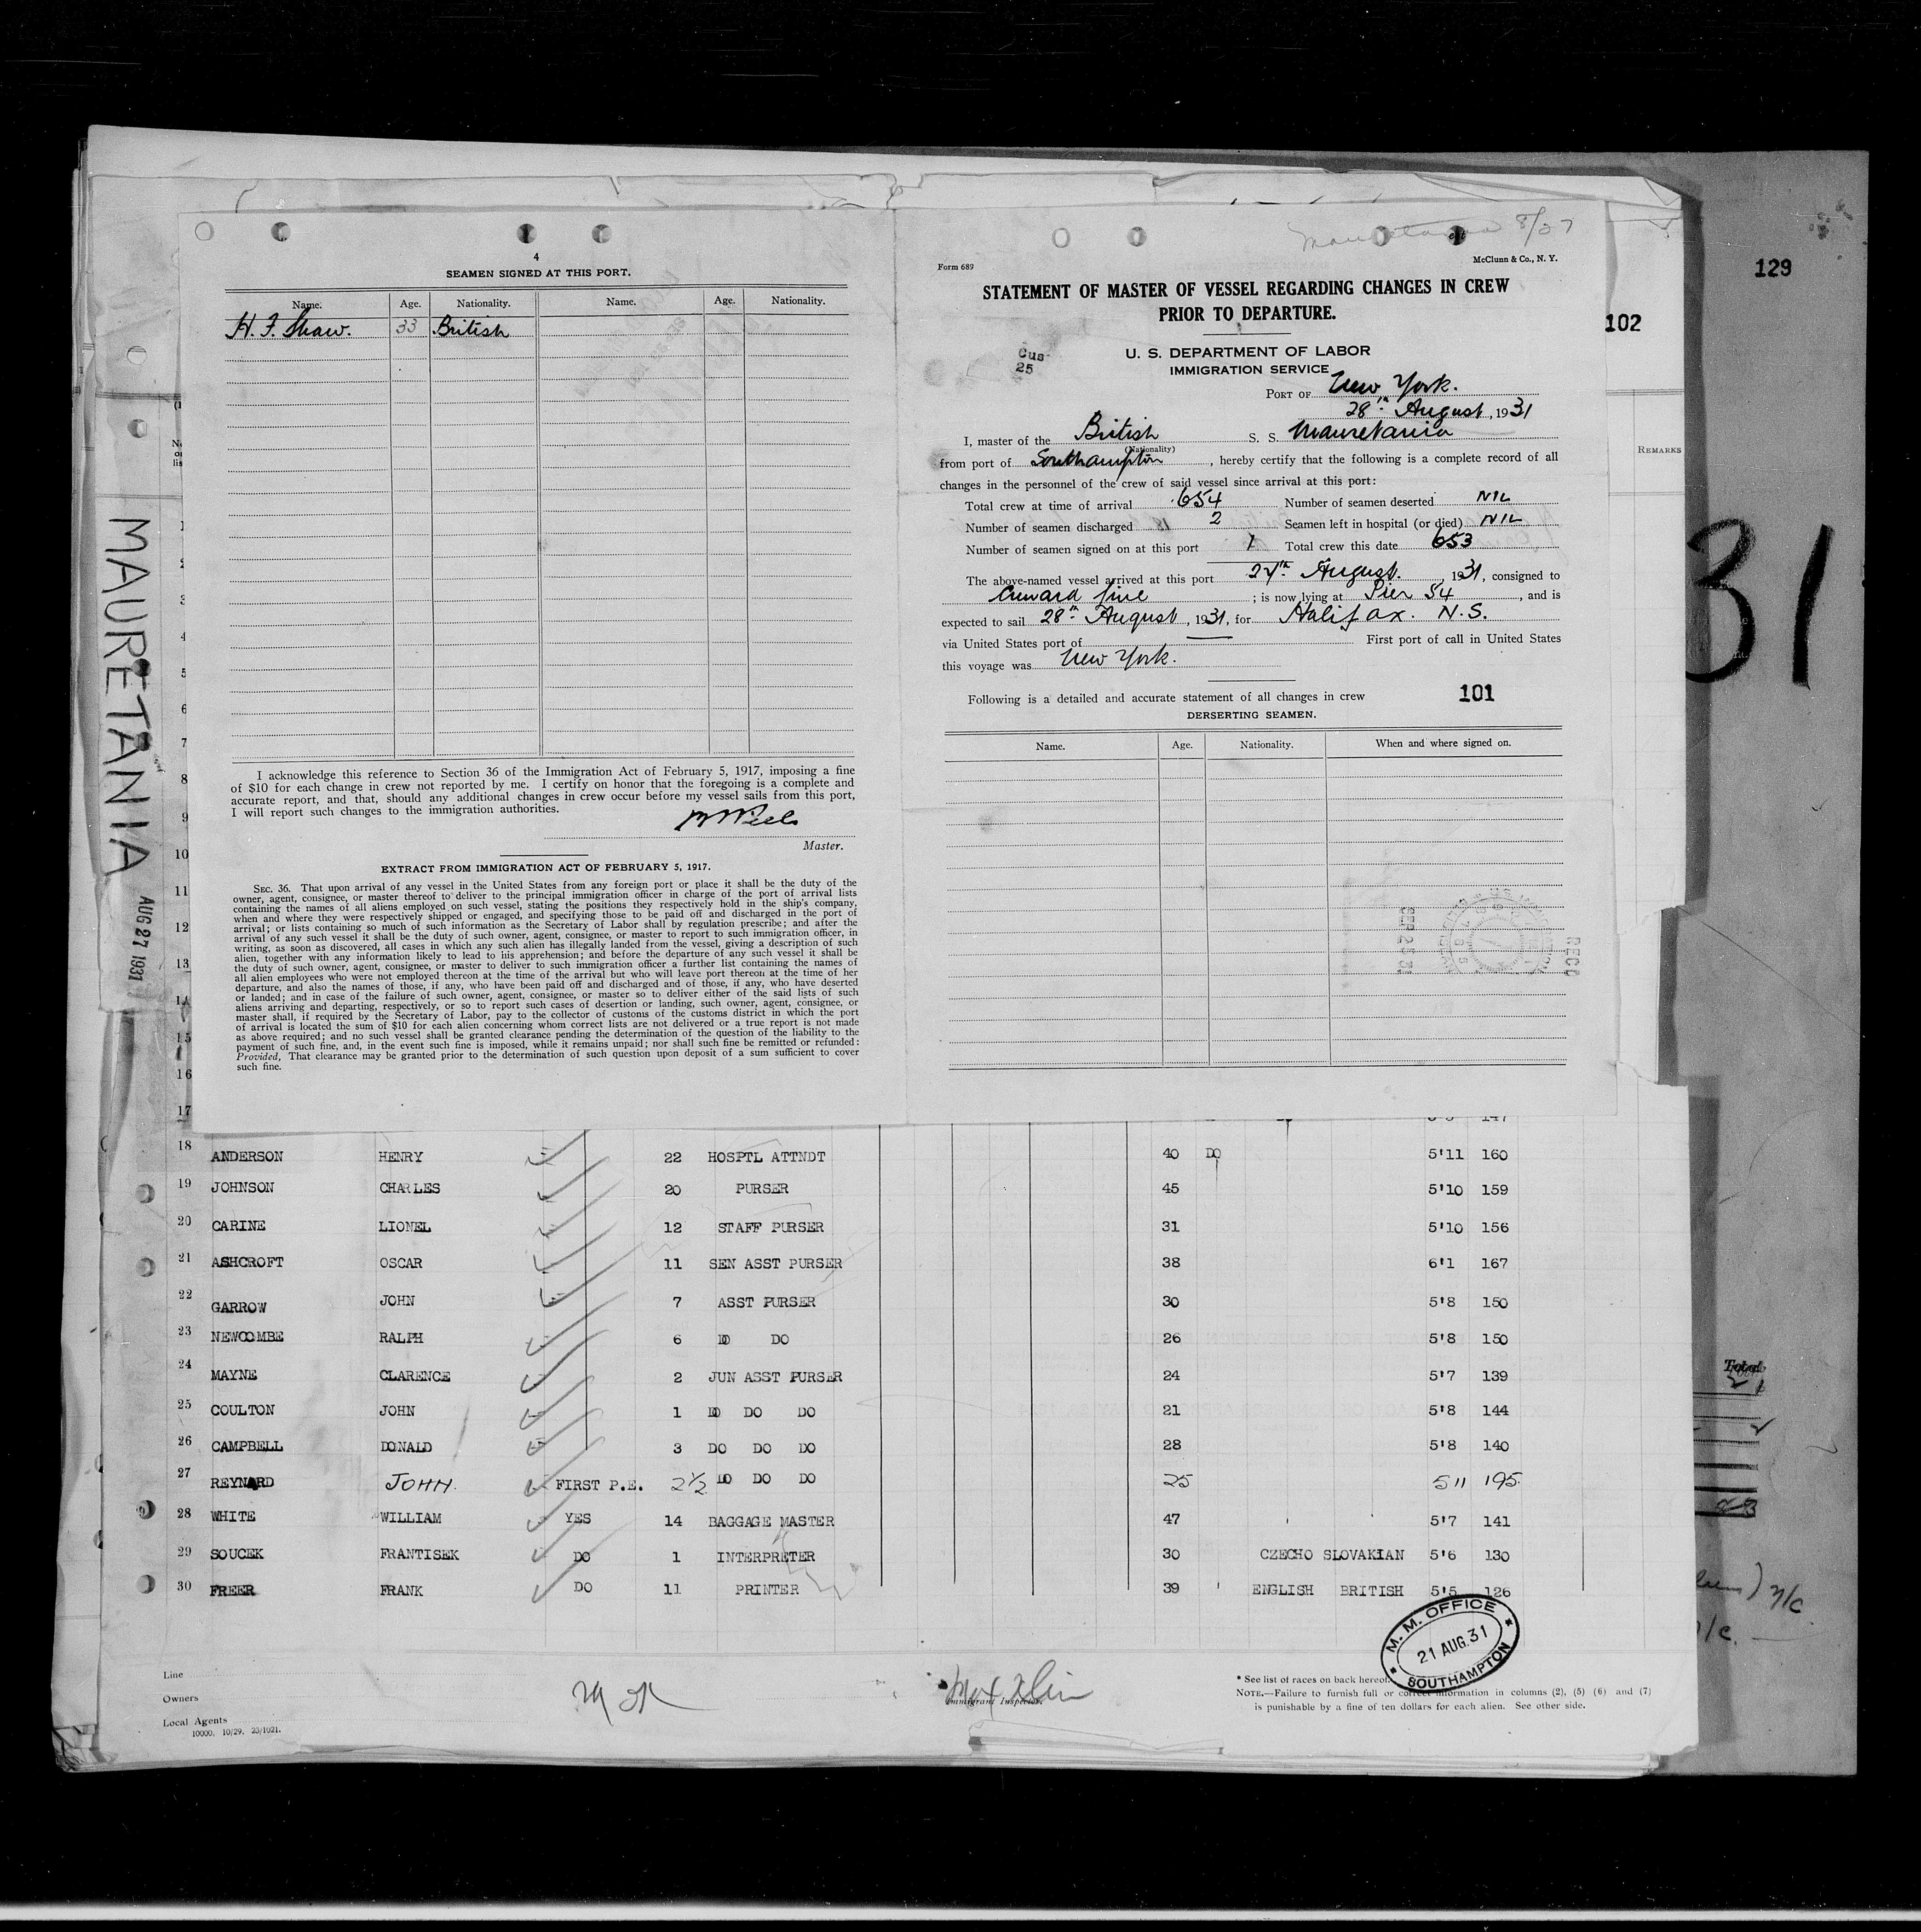 4
SEAMEN SIGNED AT THIS PORT.
Name. Age. Nationality. Name. Age. Nationality.
H. F. Shaw. 33 British
I acknowledge this reference to Section 36 of the Immigration Act of February 5, 1917, imposing a fine
of $10 for each change in crew not reported by me. I certify on honor that the foregoing is a complete and
accurate report, and that, should any additional changes in crew occur before my vessel sails from this port,
I will report such changes to the immigration authorities.
Master.
EXTRACT FROM IMMIGRATION ACT OF FEBRUARY 5, 1917.
SEC. 36. That upon arrival of any vessel in the United States from any foreign port or place it shall be the duty of the
owner, agent, consignee, or master thereof to deliver to the principal immigration officer in charge of the port of arrival lists
containing the names of all aliens employed on such vessel, stating the positions they respectively hold in the ship's company,
when and where they were respectively shipped or engaged, and specifying those to be paid off and discharged in the port of
arrival; or lists containing so much of such information as the Secretary of Labor shall by regulation prescribe; and after the
arrival of any such vessel it shall be the duty of such owner, agent, consignee, or master to report to such immigration officer, in
writing, as soon as discovered, all cases in which any such alien has illegally landed from the vessel, giving a description of such
alien, together with any information likely to lead to his apprehension; and before the departure of any such vessel it shall be
the duty of such owner, agent, consignee, or master to deliver to such immigration officer a further list containing the names of
all alien employees who were not employed thereon at the time of the arrival but who will leave port thereon at the time of her
departure, and also the names of those, if any, who have been paid off and discharged and of those, if any, who have deserted
or landed; and in case of the failure of such owner, agent, consignee, or master so to deliver either of the said lists of such
aliens arriving and departing, respectively, or so to report such cases of desertion or landing, such owner, agent, consignee, or
master shall, if required by the Secretary of Labor, pay to the collector of customs of the customs district in which the port
of arrival is located the sum of $10 for each alien concerning whom correct lists are not delivered or a true report is not made
as above required; and no such vessel shall be granted clearance pending the determination of the question of the liability to the
payment of such fine, and, in the event such fine is imposed, while it remains unpaid; nor shall such fine be remitted or refunded:
Provided, That clearance may be granted prior to the determination of such question upon deposit of a sum sufficient to cover
such fine.
Mauretania 8/27
Form 689 McClunn & Co., N. Y.
STATEMENT OF MASTER OF VESSEL REGARDING CHANGES IN CREW
PRIOR TO DEPARTURE.
Cus
25
U. S. DEPARTMENT OF LABOR
IMMIGRATION SERVICE
PORT OF New York.
28th August, 1931
I, master of the British S. S. Mauretania
(Nationality)
from port of Southampton, hereby certify that the following is a complete record of all
changes in the personnel of the crew of said vessel since arrival at this port:
Total crew at time of arrival 654 Number of seamen deserted NIL
Number of seamen discharged 2 Seamen left in hospital (or died) NIL
Number of seamen signed on at this port 1 Total crew this date 653
The above-named vessel arrived at this port 27th August. 1931, consigned to
Cunard Line; is now lying at Pier 54, and is
expected to sail 28th August, 1931, for Halifax. N.S.
via United States port of First port of call in United States
this voyage was New York.
Following is a detailed and accurate statement of all changes in crew 101
DERSERTING SEAMEN.
Name. Age. Nationality. When and where signed on.
129
102
REMARKS
31
MAURETANIA
AUG 27 1931
1
2
3
4
5
6
7
8
9
10
11
12
13
14
15
16
17 147
18 ANDERSON HENRY 22 HOSPTL ATTNDT 40 DO 5'11 160
19 JOHNSON CHARLES 20 PURSER 45 5'10 159
20 CARINE LIONEL 12 STAFF PURSER 31 5'10 156
21 ASHCROFT OSCAR 11 SEN ASST PURSER 38 6'1 167
22 GARROW JOHN 7 ASST PURSER 30 5'8 150
23 NEWCOMBE RALPH 6 DO DO 26 5'8 150
24 MAYNE CLARENCE 2 JUN ASST PURSER 24 5'7 139
25 COULTON JOHN 1 DO DO DO 21 5'8 144
26 CAMPBELL DONALD 3 DO DO DO 28 5'8 140
27 REYNARD JOHN. FIRST P.E. 2½ DO DO DO 25 5 11 195
28 WHITE WILLIAM YES 14 BAGGAGE MASTER 47 5'7 141
29 SOUCEK FRANTISEK DO 1 INTERPRETER 30 CZECHO SLOVAKIAN 5'6 130
30 FREER FRANK DO 11 PRINTER 39 ENGLISH BRITISH 5'5 126
M. M. OFFICE
21 AUG.31
SOUTHAMPTON
Line
Owners
Local Agents
10000. 10/29. 23/1021.
Immigrant Inspector.
* See list of races on back hereof.
NOTE.—Failure to furnish full or correct information in columns (2), (5) (6) and (7)
is punishable by a fine of ten dollars for each alien. See other side.
Total